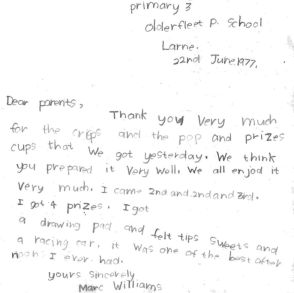 primary 3
olderfleet P. School
Larne.
22nd June 1977.
Dear parents,
Thank you Very much
for the crips and the pop and prizes
cups that We got yesterday. We think
you prepared it Very Well. We all enjod it
Very much. I came 2nd and 2nd and 3rd.
I got 4 prizes. I got
a drawing pad and felt tips sweets and
a racing car. it Was one of the best after
noon I ever had.
yours Sincerely
Marc Williams